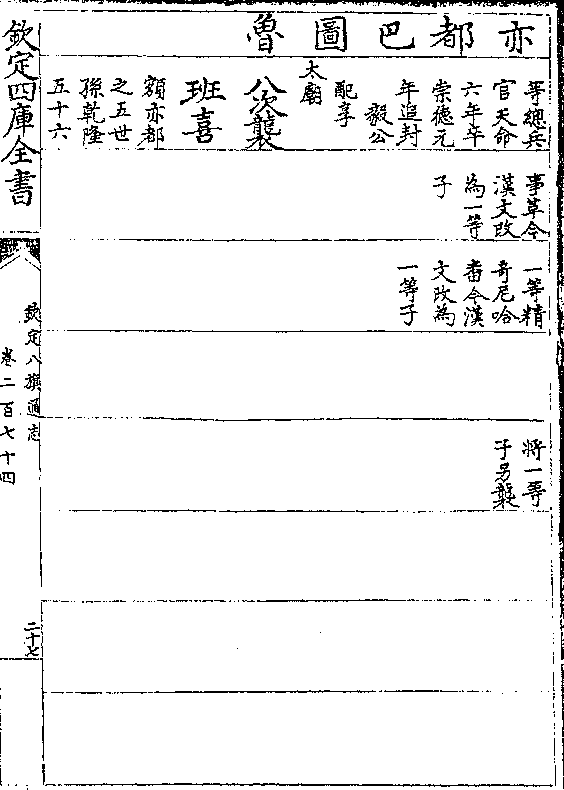 亦都巴圖魯
等總兵
官天命
六年卒
崇德元
年追封
毅公
配享
太廟
八次襲
班喜
額亦都
之五世
孫乾隆
五十六
事革今
漢文改
為一等
子
一等精
奇尼哈
番今漢
文改為
一等子
將一等
子另襲
欽定四庫全書
欽定八旗通志
卷二百七十四
二十七